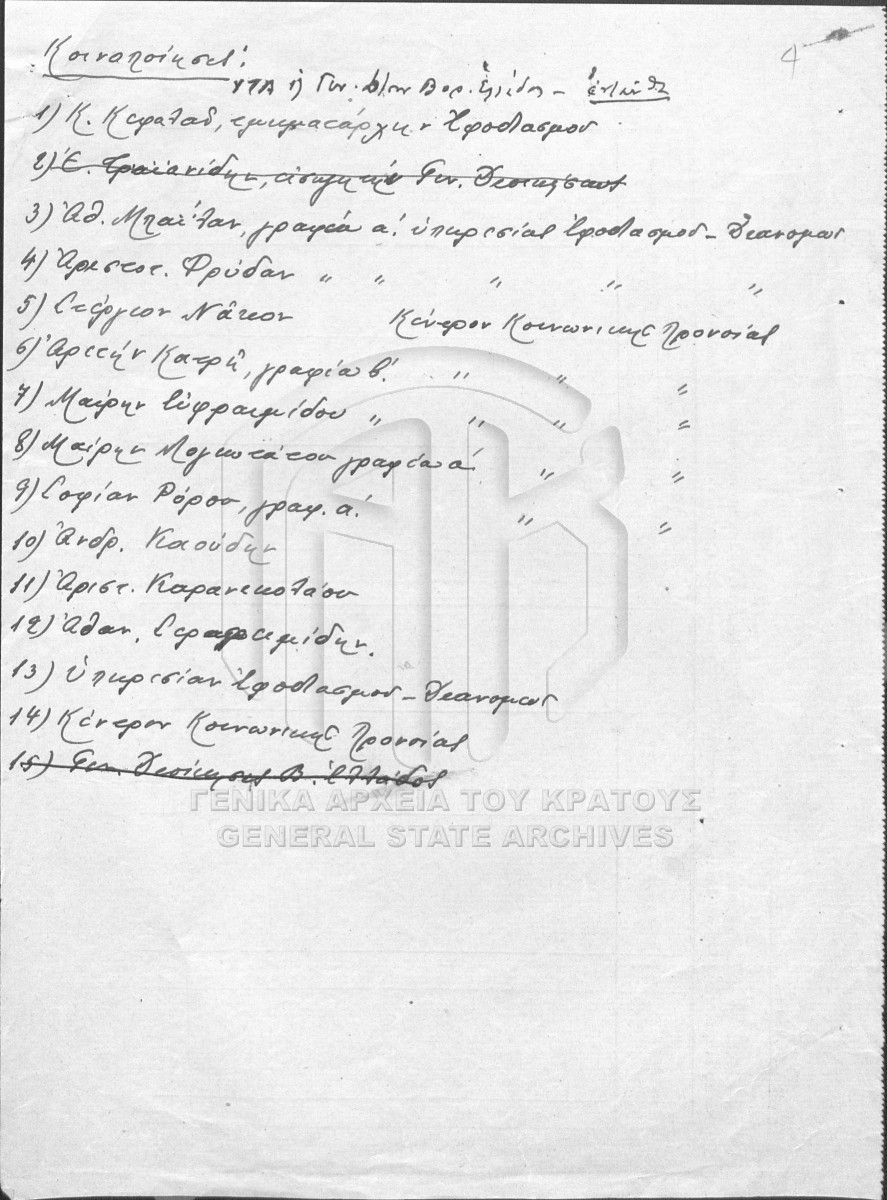 4
Κοινοποίησις:
ΥΠΑ ἡ Γεν. Δ/σιν Βορ. Ἑλλάδος – ἐνταῦθα
1) Κ. Κεφαλᾶν, τμηματάρχην Ἐφοδιασμοῦ
2) Ἐ. Τραϊανίδην, εἰσηγητήν Γεν. Διοικήσεως
3) Ἀθ. Μπαΐταν, γραφέα α΄. ὑπηρεσίας Ἐφοδιασμοῦ – Διανομῶν
4) Ἀριστοτ. Φρύδαν " " " " "
5) Γεώργιον Νᾶκον Κέντρον Κοινωνικῆς Προνοίας
6) Ἀρετήν Κατρῆ, γραφέα β΄. " " "
7) Μαίρην Εὐφραιμίδου " " " "
8) Μαίρην Μογκοτάτου γραφέα α΄ " "
9) Σοφίαν Ρόρου, γραφ. α΄. " "
10) Ἀνδρ. Καούδην
11) Ἀριστ. Καρανικολάου
12) Ἀθαν. Σεραφειμίδην.
13) Ὑπηρεσίαν Ἐφοδιασμοῦ – Διανομῶν
14) Κέντρον Κοινωνικῆς Προνοίας
15) Γεν. Διοίκησις Β. Ἑλλάδος
ΓΕΝΙΚΑ ΑΡΧΕΙΑ ΤΟΥ ΚΡΑΤΟΥΣ
GENERAL STATE ARCHIVES